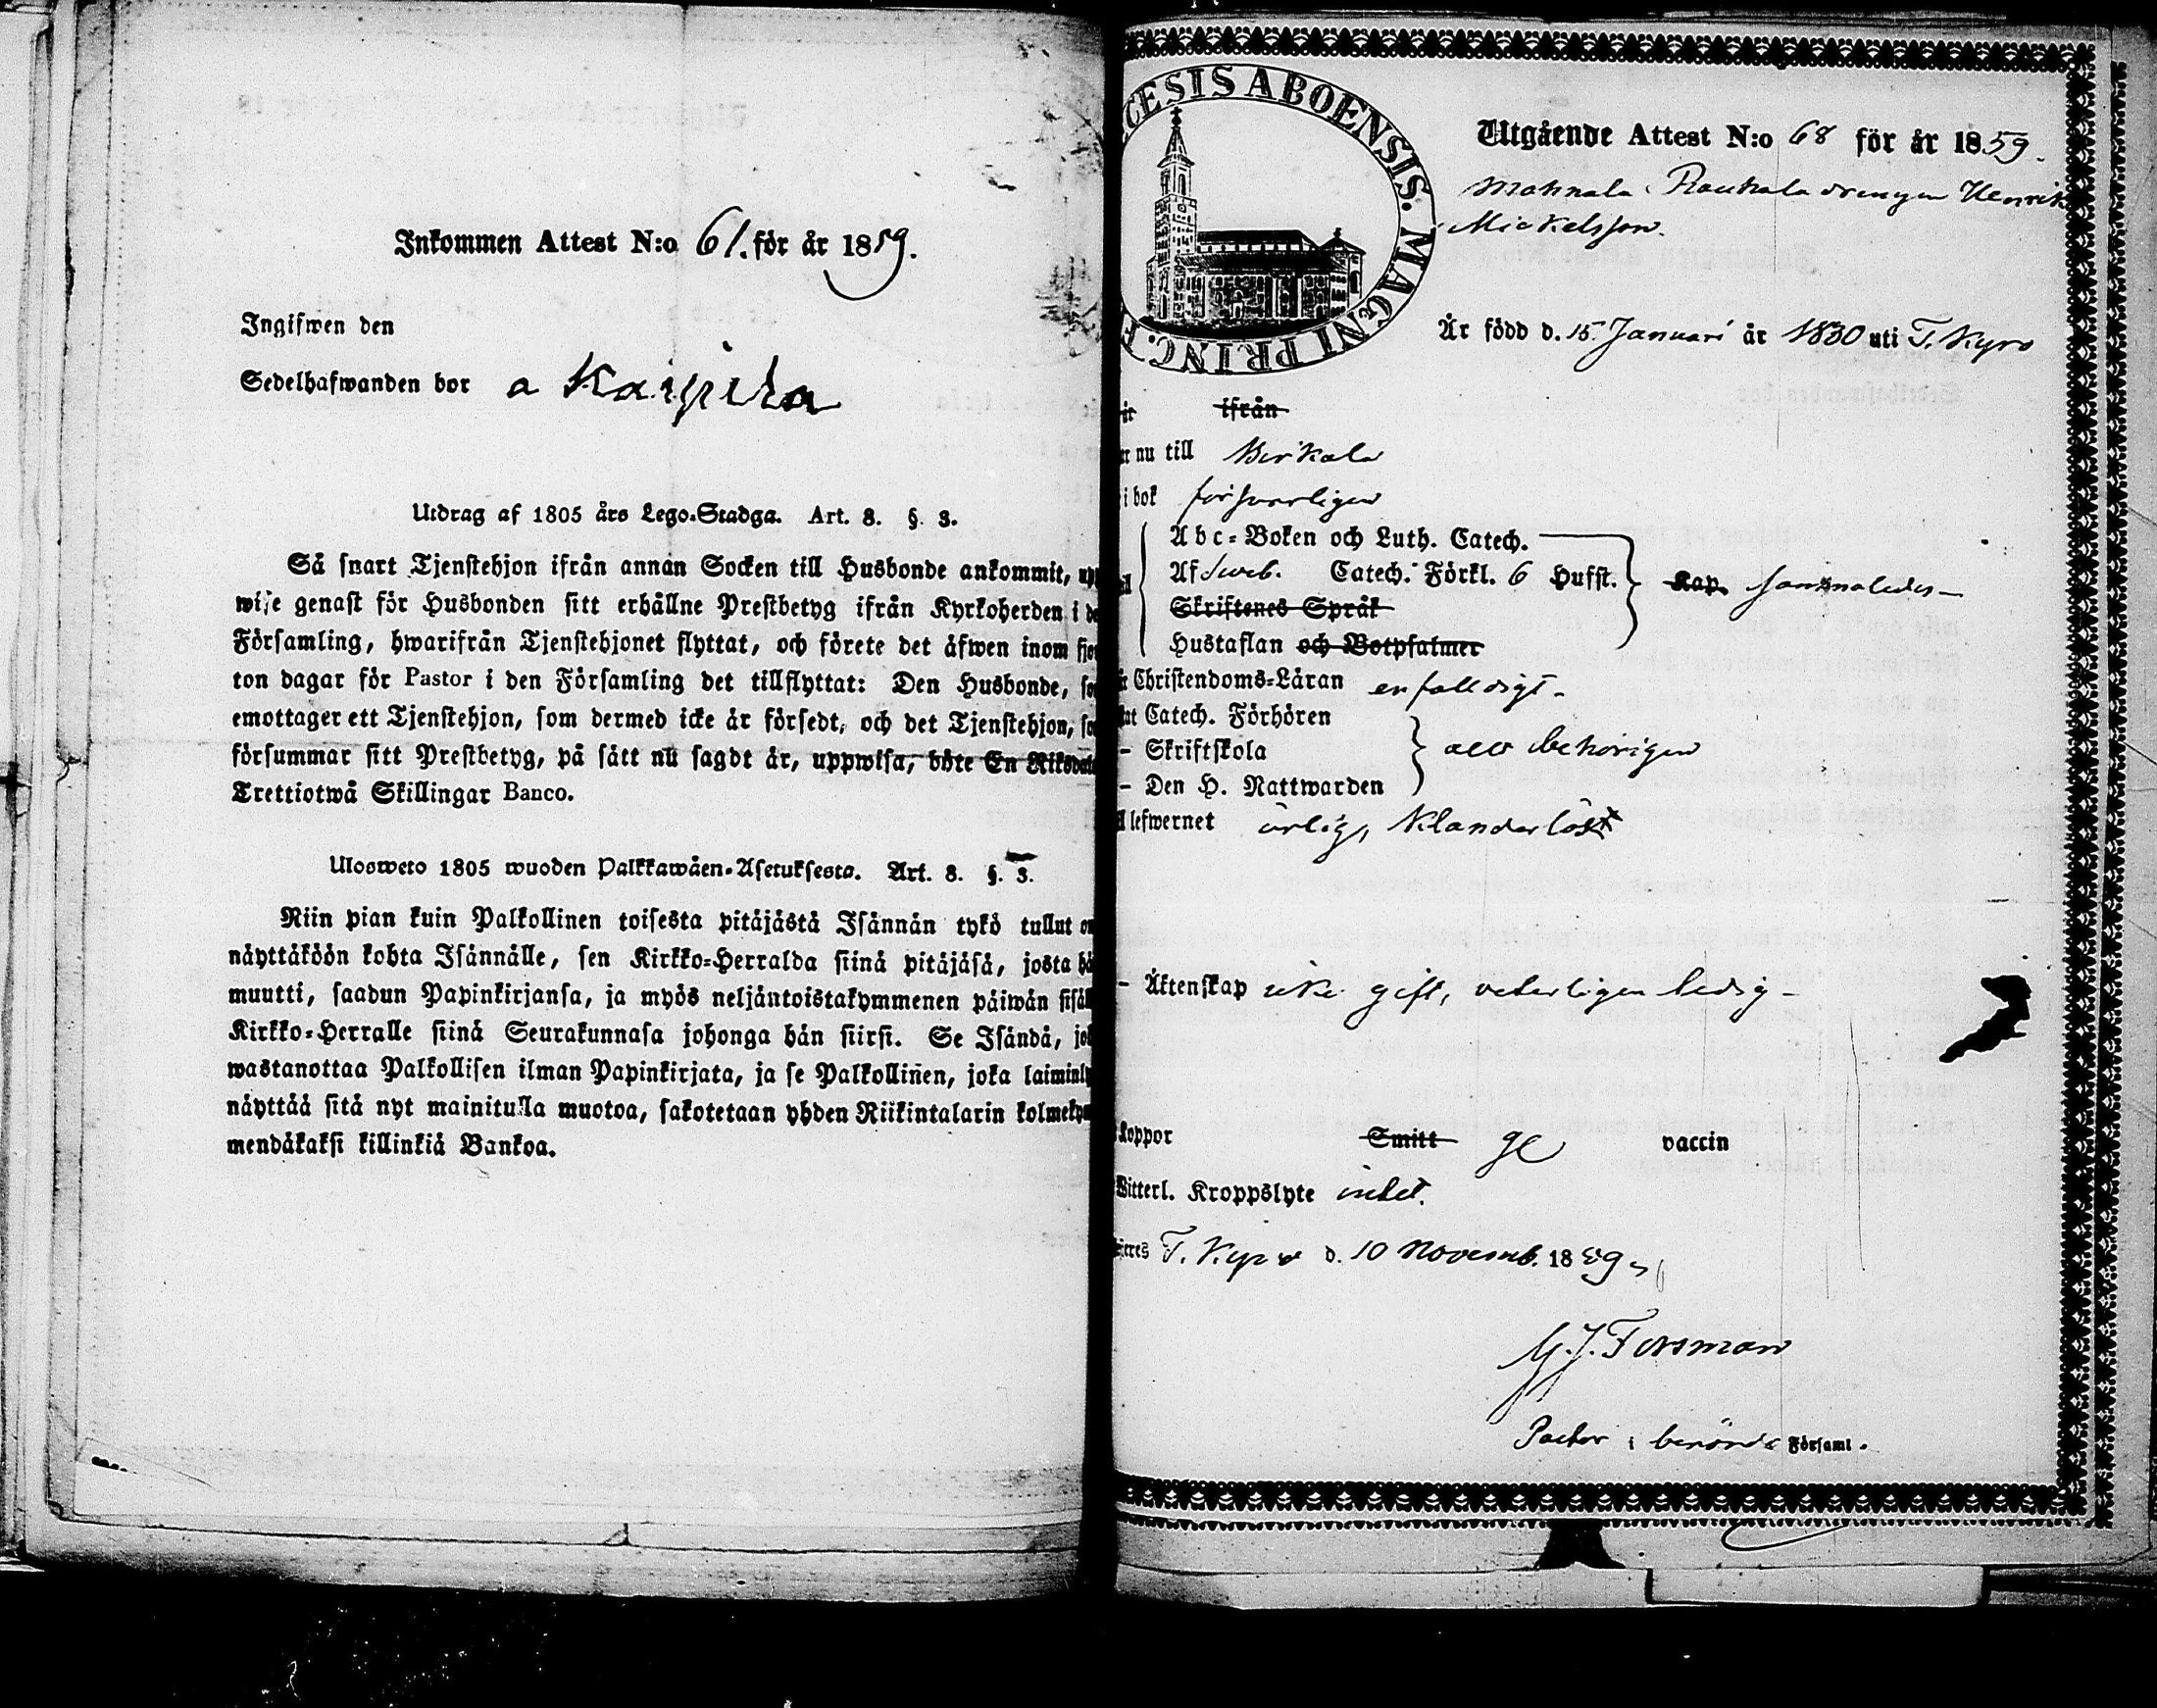 Inkommen Attest N:o 61. för år 1859.
Ingifwen den
Sedelhafwanden bor a Kaipila
Utdrag af 1805 års Lego-Stadga. Art. 8. §. 3.
Så snart Tjenstehjon ifrån annan Socken till Husbonde ankommit, upp
wise genast för Husbonden sitt erhållne Prestbetyg ifrån Kyrkoherden i de
Församling, hwarifrån Tjenstehjonet flyttat, och förete det äfwen inom fjor
ton dagar för Pastor i den Församling det tillflyttat: Den Husbonde, so
emottager ett Tjenstehjon, som dermed icke är försedt, och det Tjenstehjon, so
försummar sitt Prestbetyg, på sätt nu sagdt är, uppwisa, böte En Riksdale
Trettiotwå Skillingar Banco.
Ulosweto 1805 wuoden Palkkawäen-Asetuksesta. Art. 8. §. 3.
Niin pian kuin Palkollinen toisesta pitäjästä Isännän tykö tullut on
näyttäköön kohta Isännälle, sen Kirkko-Herralda siinä pitäjäsä, josta hä
muutti, saadun Papinkirjansa, ja myös neljäntoistakymmenen päiwän sisäll
Kirkko-Herralle siinä Seurakunnasa johonga hän siirsi. Se Isändä, jok
wastanottaa Palkollisen ilman Papinkirjata, ja se Palkollinen, joka laiminly
näyttää sitä nyt mainitulla muotoa, sakotetaan yhden Riikintalarin kolmekym
mendäkaksi killinkiä Bankoa.
CESIS ABOENSIS. MAGNI PRINC. F
Utgående Attest N:o 68 för år 1859.
Mahnala Rauhala drengen Henrik
Mickelsson.
Är född d. 15 Januari år 1830 uti T. Kyro
it ifrån
r nu till Birkala
i bok försvarligen
Abc-Boken och Luth. Catech.
Af Sveb. Catech. Förkl. 6 Hufst. Kap. sammaledes
Skriftenes Språk
Hustaflan och Botpsalmer
Christendoms-Läran enfalldigt
at Catech. Förhören
- Skriftskola allt behörigen
- Den H. Nattwarden
lefwernet ärligt, klanderlöst
- Äktenskap icke gift, veterligen ledig
koppor Smitt ge vaccin
Witterl. Kroppslyte intet.
eres T. Kyro d. 10 Novemb. 1859
G. J. Forsman
Pastor i berörde Församl.